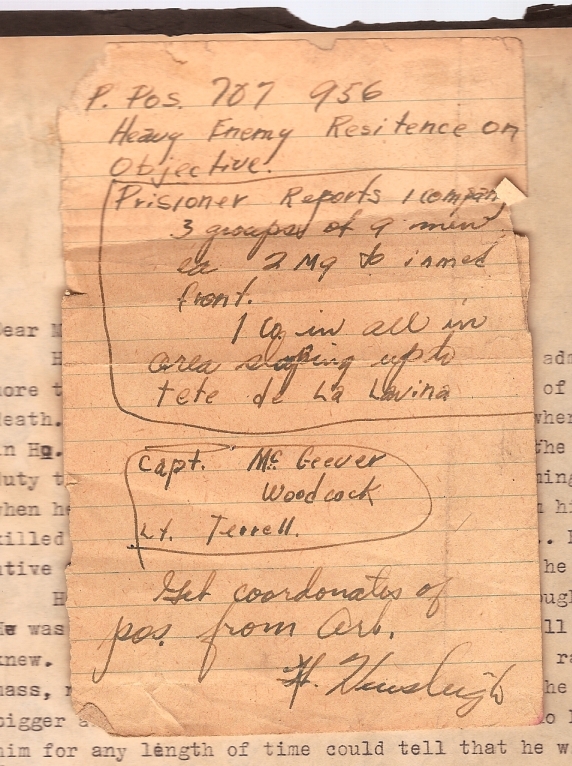 P. Pos. 707 956
Heavy Enemy Resitence on
Objective.
Prisioner Reports 1 compan
3 groups of 9 men
ea 2 Mg to immed
front.
1 Co in all in
area sloping up to
tete de La Lavina
Capt. Mc Geever
Woodcock
Lt. Terrell.
Get coordonates of
pos. from Art.
H. Hensleigh
ear
more t
death. wher
in Hq. the
duty t ning
when he
killed
ative he
He was ll
knew.
mass, he
bigger
him for any length of time could tell that he w